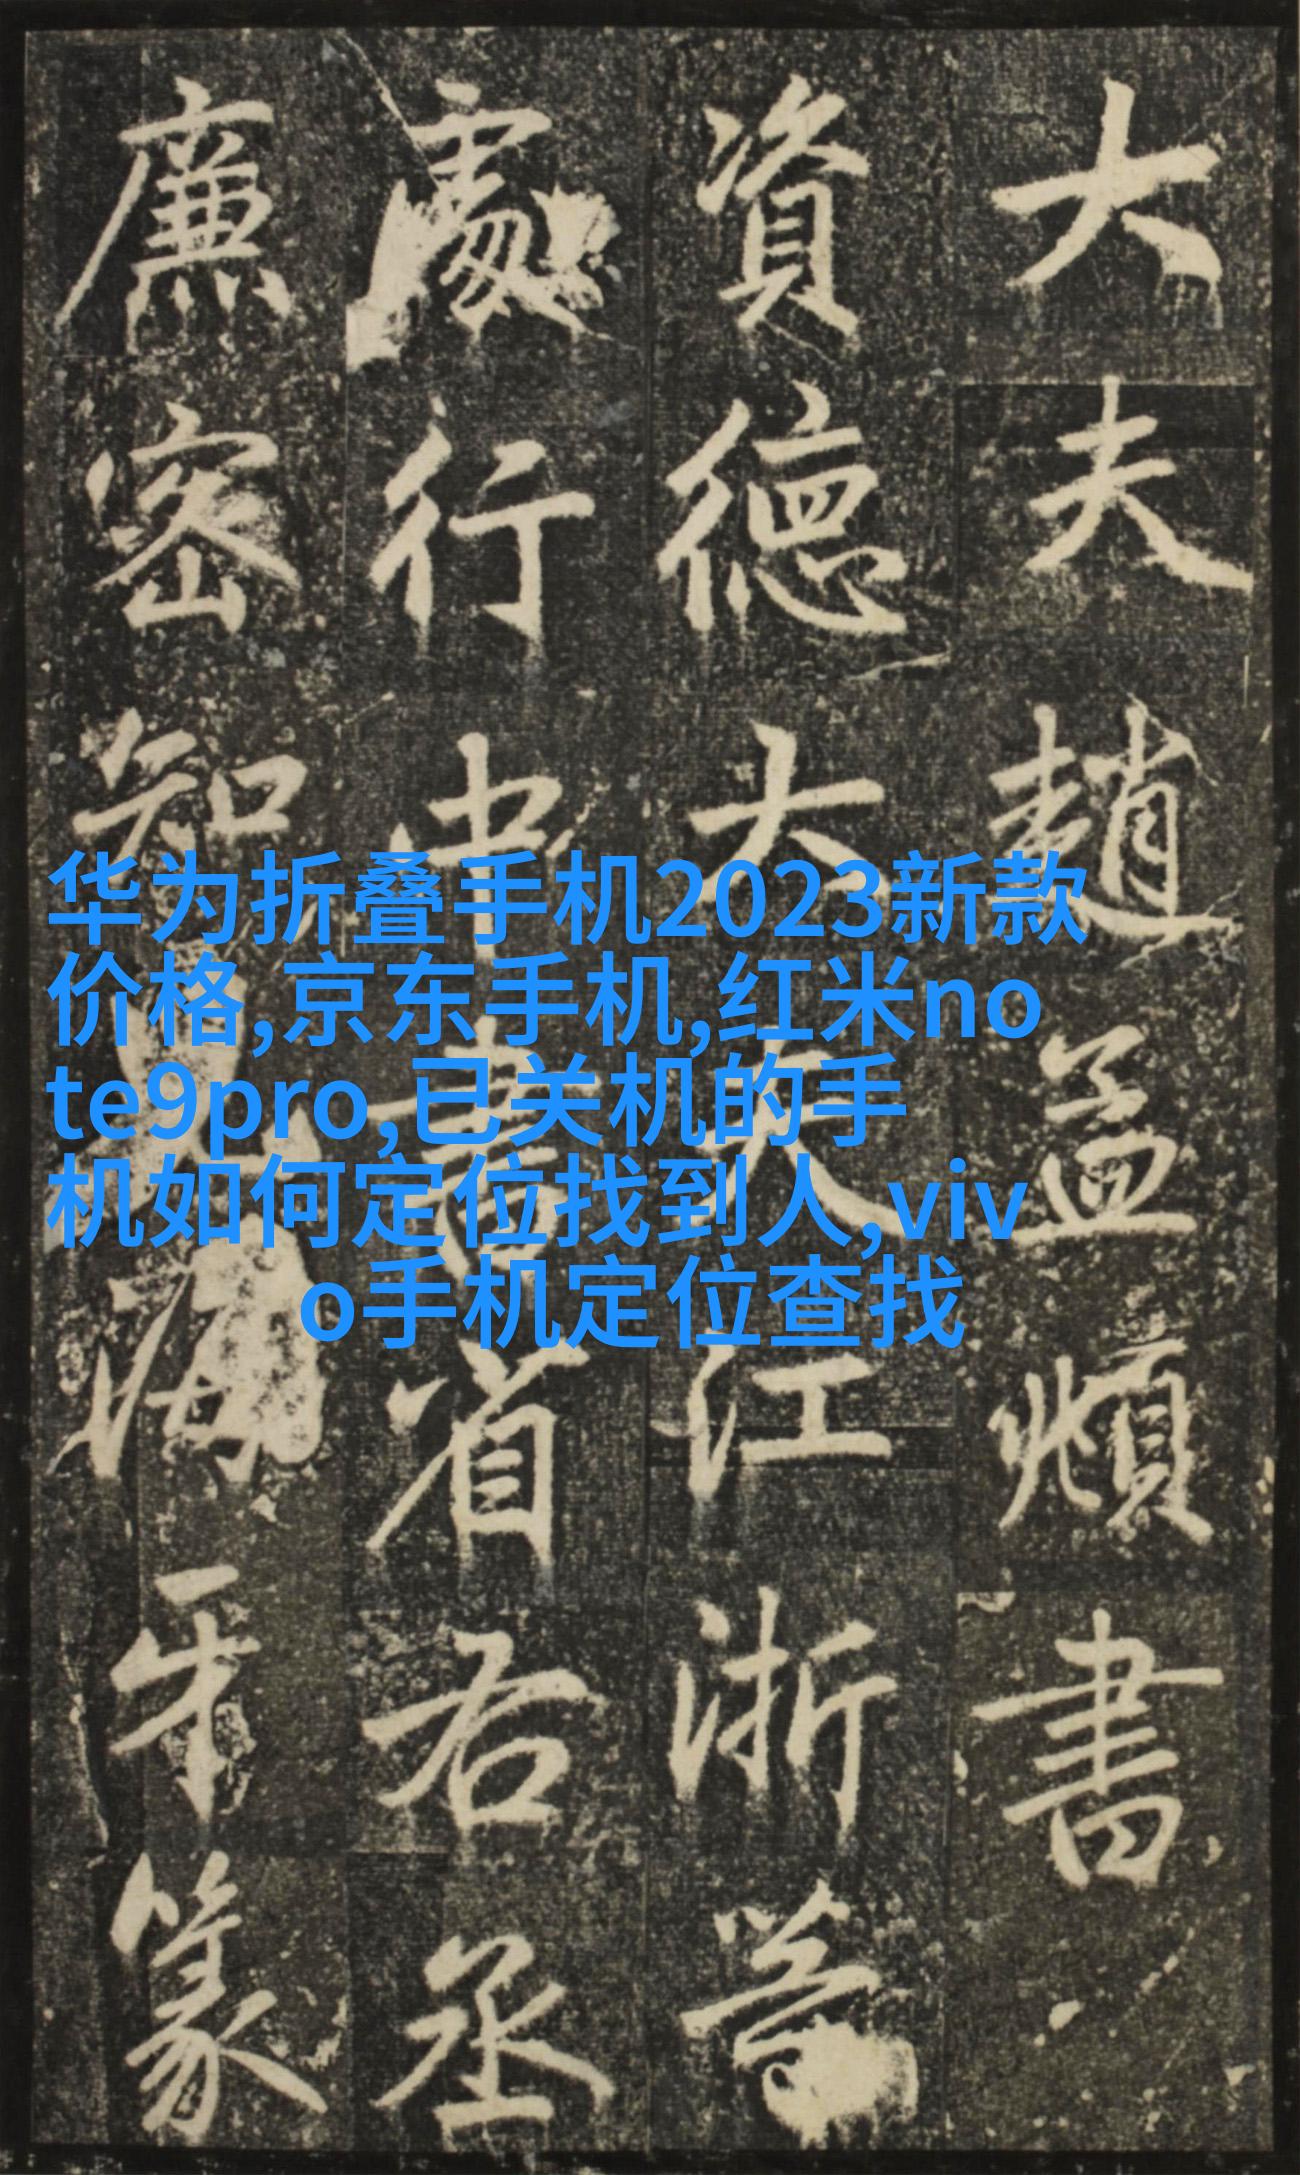 大夫趙孟頫書
資德大夫江浙等
處行中書省右丞
廉密知海牙篆
华为折叠手机2023新款
价格,京东手机,红米no
te9pro,已关机的手
机如何定位找到人,viv
o手机定位查找